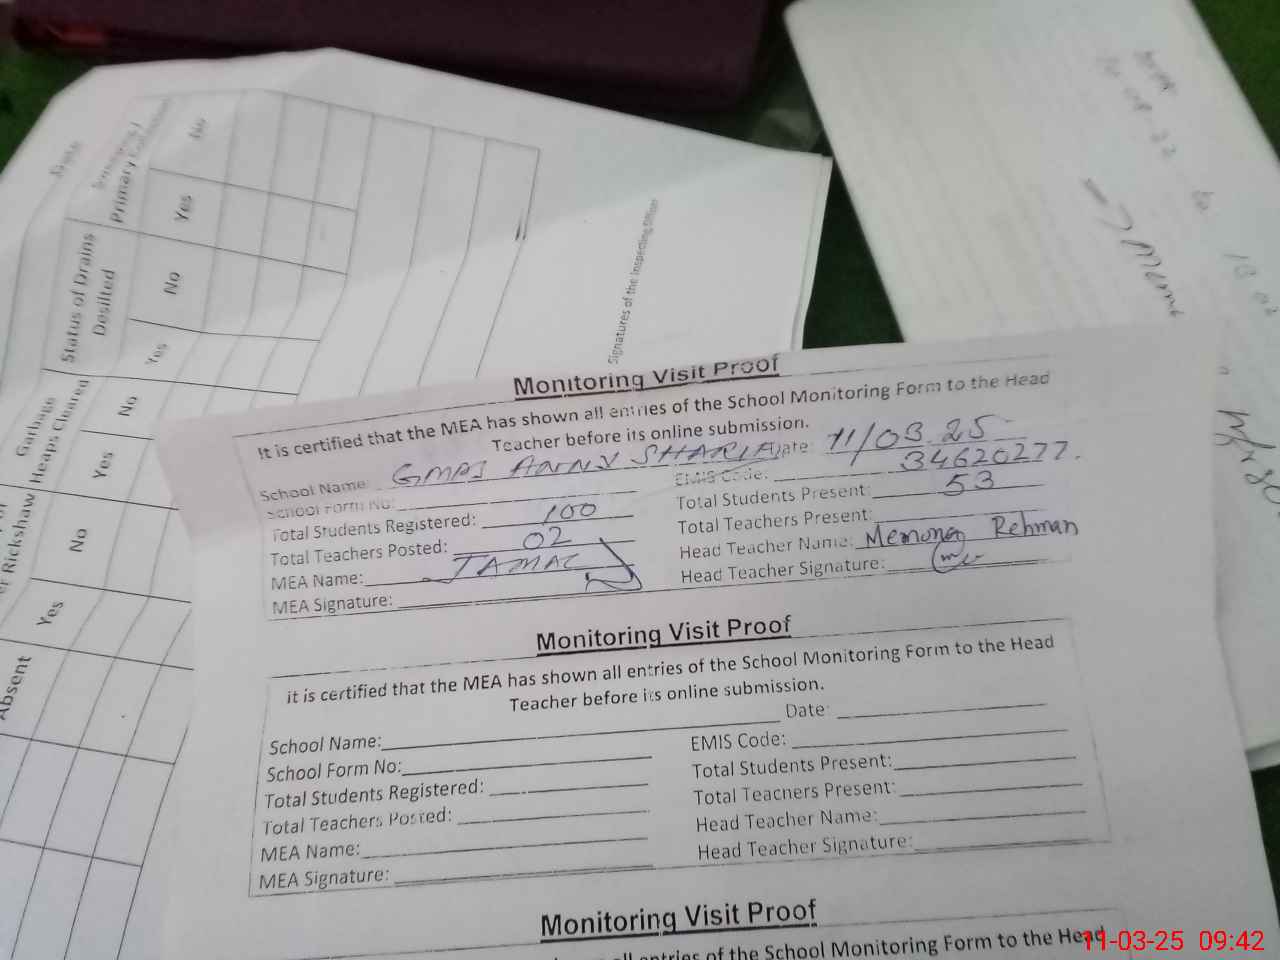 Date
Primary
No
Yes
Status of Drains
Desilted
No
Yes
Garbage
Heaps Cleared
No
Yes
Rickshaw
No
Yes
Absent
Signatures of the Inspecting Officer
Monitoring Visit Proof
It is certified that the MEA has shown all entries of the School Monitoring Form to the Head
Teacher before its online submission.
School Name: GMPS SHARIF Date: 11/03.25
School Form No: EMIS Code: 34620277.
Total Students Registered: 100 Total Students Present: 53
Total Teachers Posted: 02 Total Teachers Present:
MEA Name: JAMAL Head Teacher Name: Rehman
MEA Signature: Head Teacher Signature:
Monitoring Visit Proof
it is certified that the MEA has shown all entries of the School Monitoring Form to the Head
Teacher before its online submission.
Date:
School Name: EMIS Code:
School Form No: Total Students Present:
Total Students Registered: Total Teachers Present:
Total Teachers Posted: Head Teacher Name:
MEA Name: Head Teacher Signature:
MEA Signature:
Monitoring Visit Proof
all entries of the School Monitoring Form to the Head
11-03-25 09:42